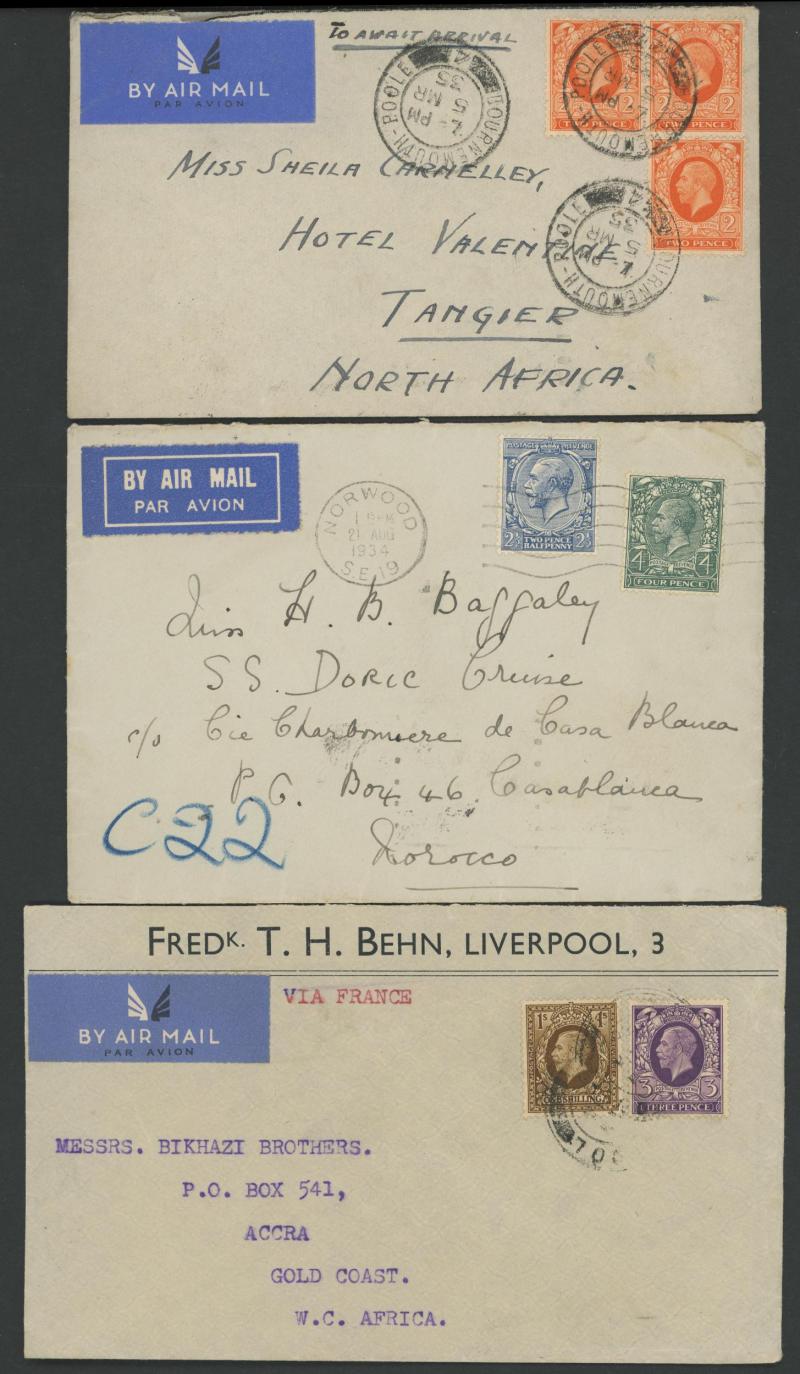 BY AIR MAIL
PAR AVION
To AWAIT ARRIVAL
BOURNEMOUTH-POOLE
PM
5 MR
35
TWO PENCE
2
2
TWO PENCE
2
BOURNEMOUTH-POOLE
PM
5 MR
35
TWO PENCE
2
MISS SHEILA CARNELLEY,
HOTEL VALENTINE
TANGIER
NORTH AFRICA.
BY AIR MAIL
PAR AVION
NORWOOD
21 AUG
1934
S.E.19
POSTAGE REVENUE
2½ 2½
TWO PENCE
HALFPENNY
4 4
FOUR PENCE
Miss H. B. Baggaley
SS. DORIC Cruise
c/o Cie Charbonniere de Casa Blanca
P.O. Box 46. Casablanca
Morocco
C22
FREDK. T. H. BEHN, LIVERPOOL, 3
BY AIR MAIL
PAR AVION
VIA FRANCE
1S 1S
ONE SHILLING
3 3
THREE PENCE
MESSRS. BIKHAZI BROTHERS.
P.O. BOX 541,
ACCRA
GOLD COAST.
W.C. AFRICA.